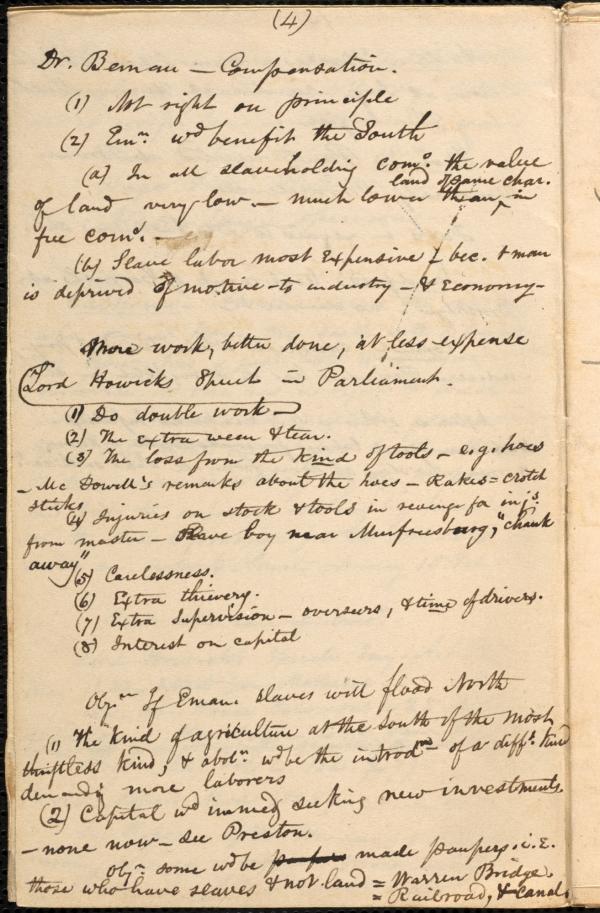 (4)
Dr. Beman — Compensation.
(1) Not right on principle
(2) Emn. wd benefit the South
(a) In all slaveholding coms. the value
land of same char.
of land very low. — much lower than in
free coms. —
(b) Slave labor most expensive — bec. & man
is deprived of motive — to industry — & Economy —
More work, better done, at less expense
Lord Howicks Speech in Parliament.
(1) Do double work —
(2) The extra wear & tear.
(3) The loss from the kind of tools — e.g. hoes
— McDowell's remarks about the hoes — Rakes = crotch
sticks
(4) Injuries on stock & tools in revenge for injs.
from master — Slave boy near Murfreesburg, "chunk
away"
(5) Carelessness.
(6) Extra thievery.
(7) Extra Supervision — overseers, & time of drivers.
(8) Interest on capital
Objn If Eman. slaves will flood North
(1) The kind of agriculture at the South of the most
thriftless kind, & aboln. wd be the introdn — of a difft. kind
demandg more laborers
(2) Capital wd immedy seeking new investments.
— none now — See Preston.
Objn. some wd be made paupers. i.e.
those who have slaves & not land = Warren Bridge.
= Railroad, & Canal.